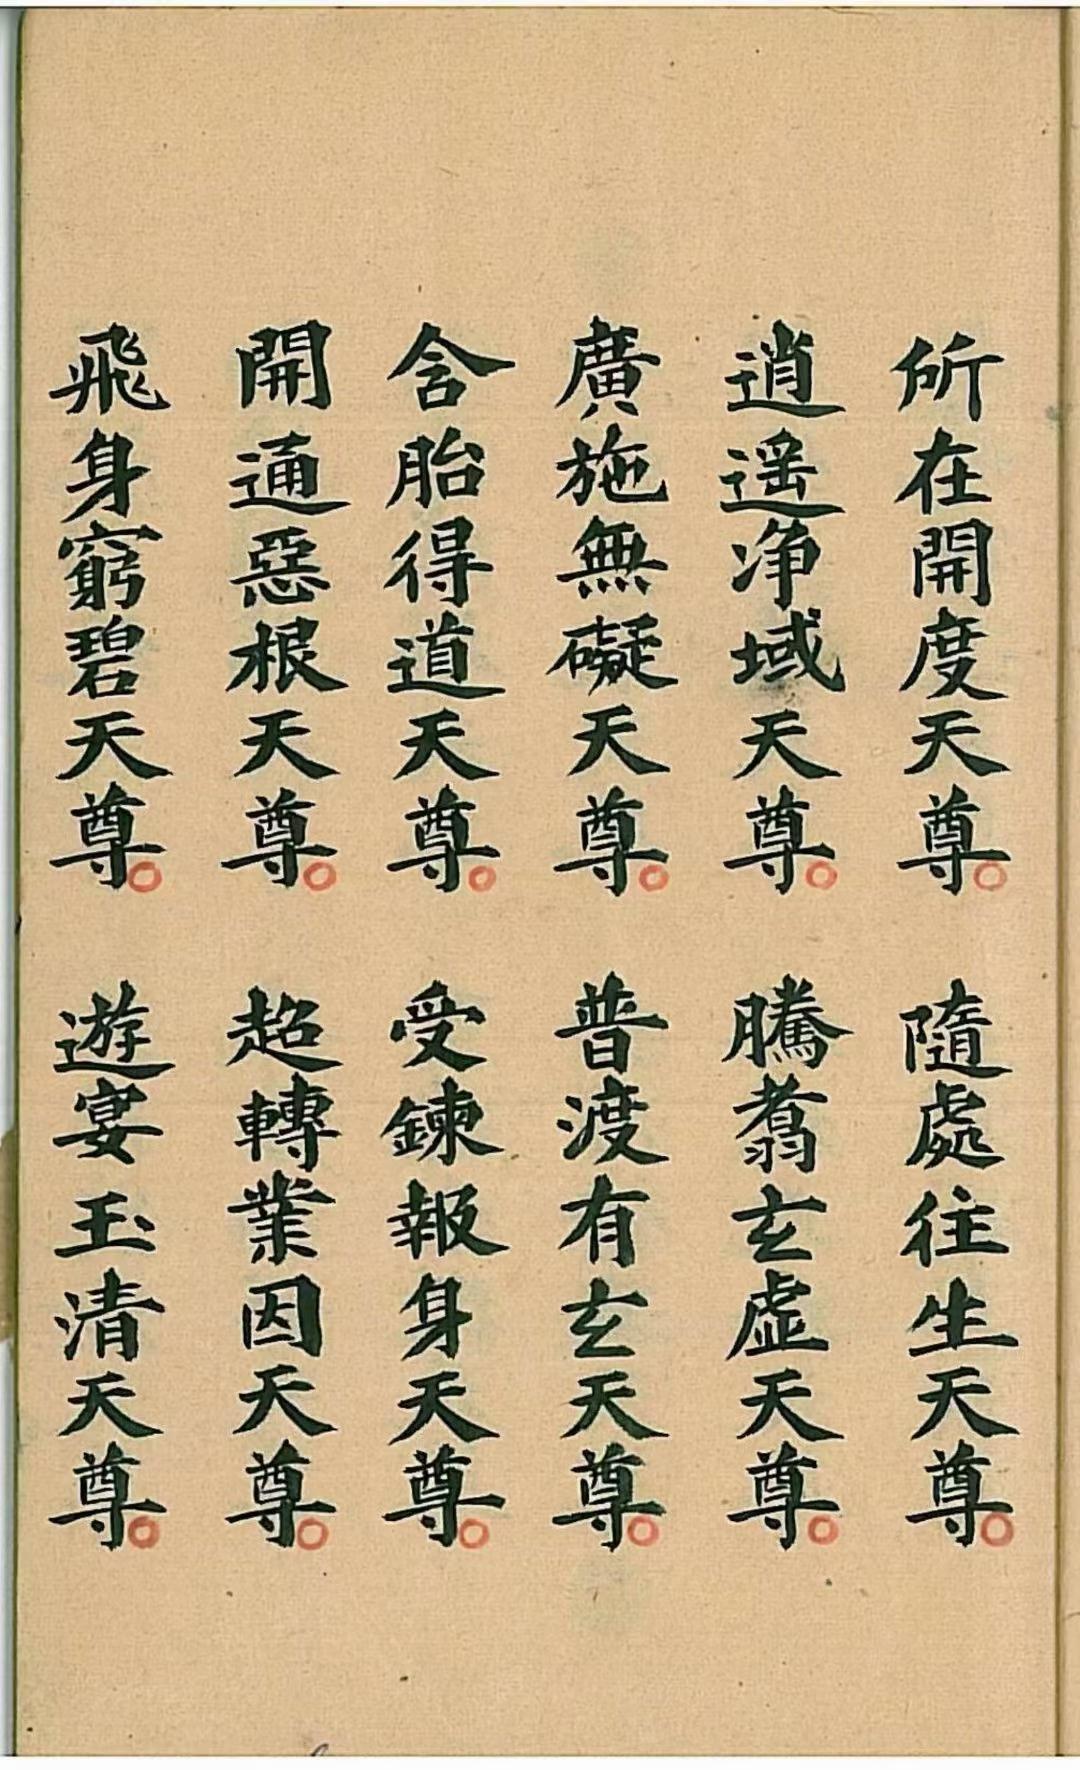 所在開度天尊。 隨處往生天尊。
逍遥净域天尊。 騰翥玄虛天尊。
廣施無礙天尊。 普渡有玄天尊。
含胎得道天尊。 受鍊報身天尊。
開通惡根天尊。 超轉業因天尊。
飛身窮碧天尊。 遊宴玉清天尊。